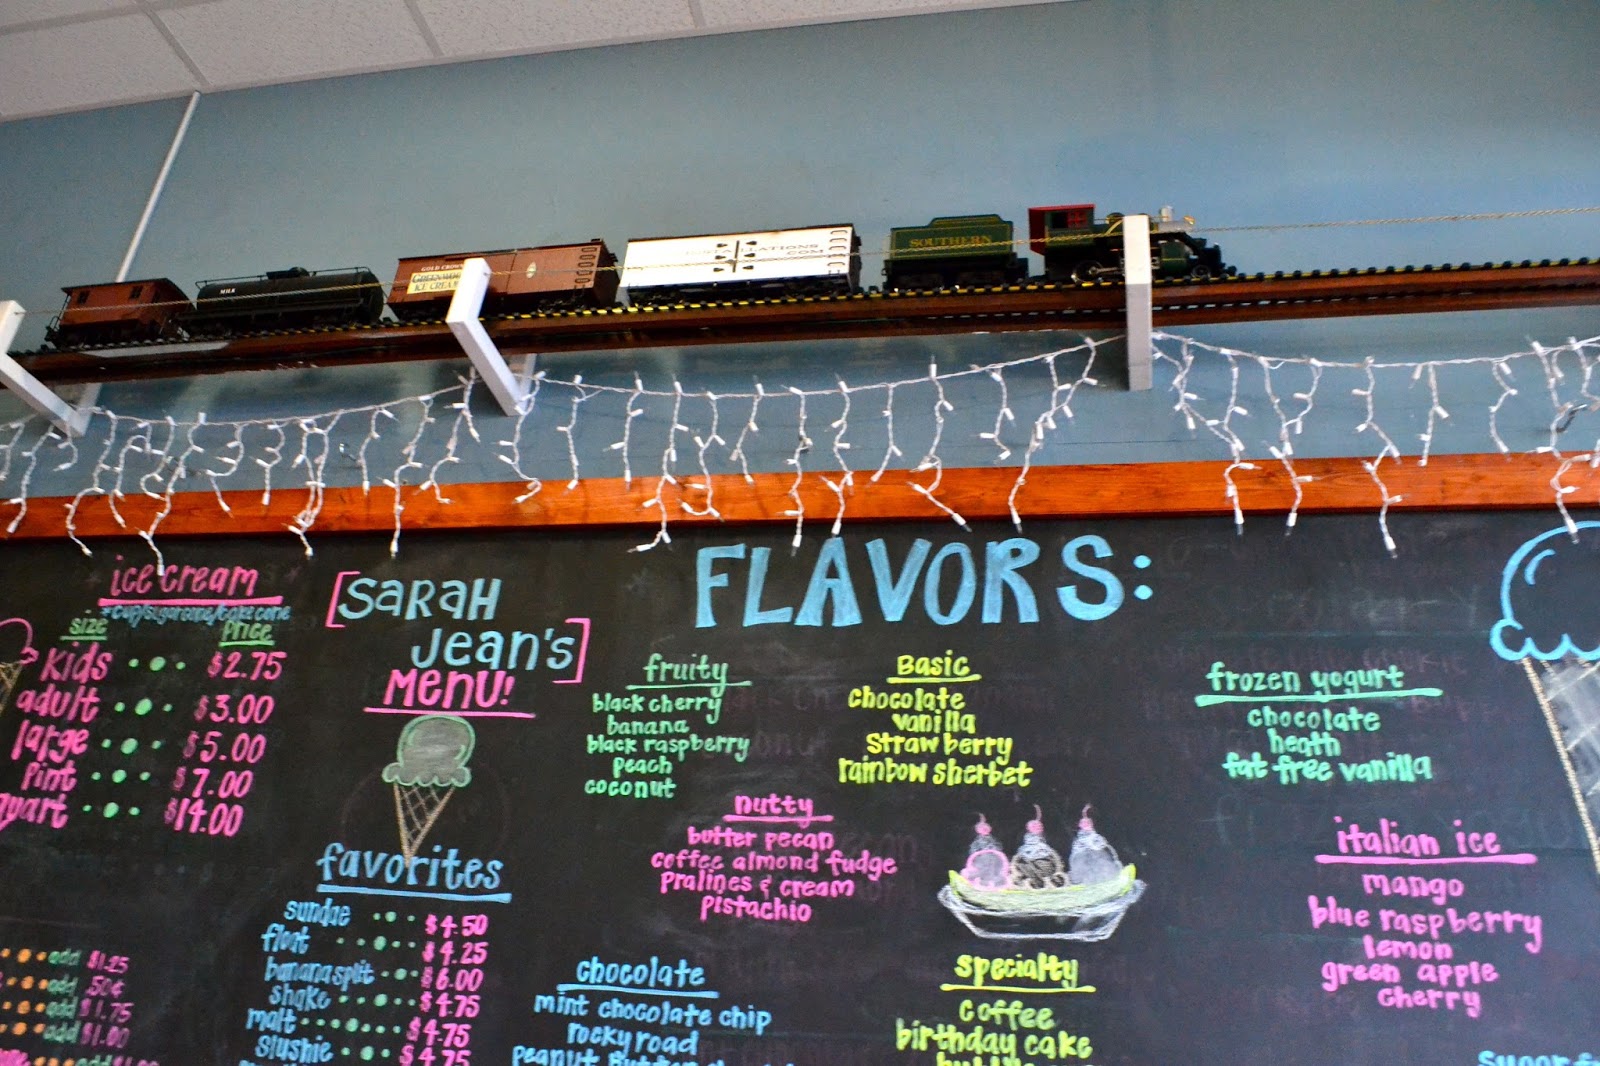 MILK
GOLD CROWN
GREENWOOD
ICE CREAM
.COM
SOUTHERN
ice cream
*cup/sugar cone/cake cone
size price
kids $2.75
adult $3.00
large $5.00
pint $7.00
quart $14.00
add $1.25
add .50¢
add $1.75
add $1.00
[SARAH
Jean's]
Menu!
favorites
sundae $4.50
float $4.25
banana split $6.00
shake $4.75
malt $4.75
slushie $4.75
FLAVORS:
fruity
black cherry
banana
black raspberry
peach
coconut
Basic
chocolate
vanilla
strawberry
rainbow sherbet
frozen yogurt
chocolate
heath
fat free vanilla
nutty
butter pecan
coffee almond fudge
pralines & cream
pistachio
italian ice
mango
blue raspberry
lemon
green apple
cherry
chocolate
mint chocolate chip
rocky road
peanut butter
specialty
coffee
birthday cake